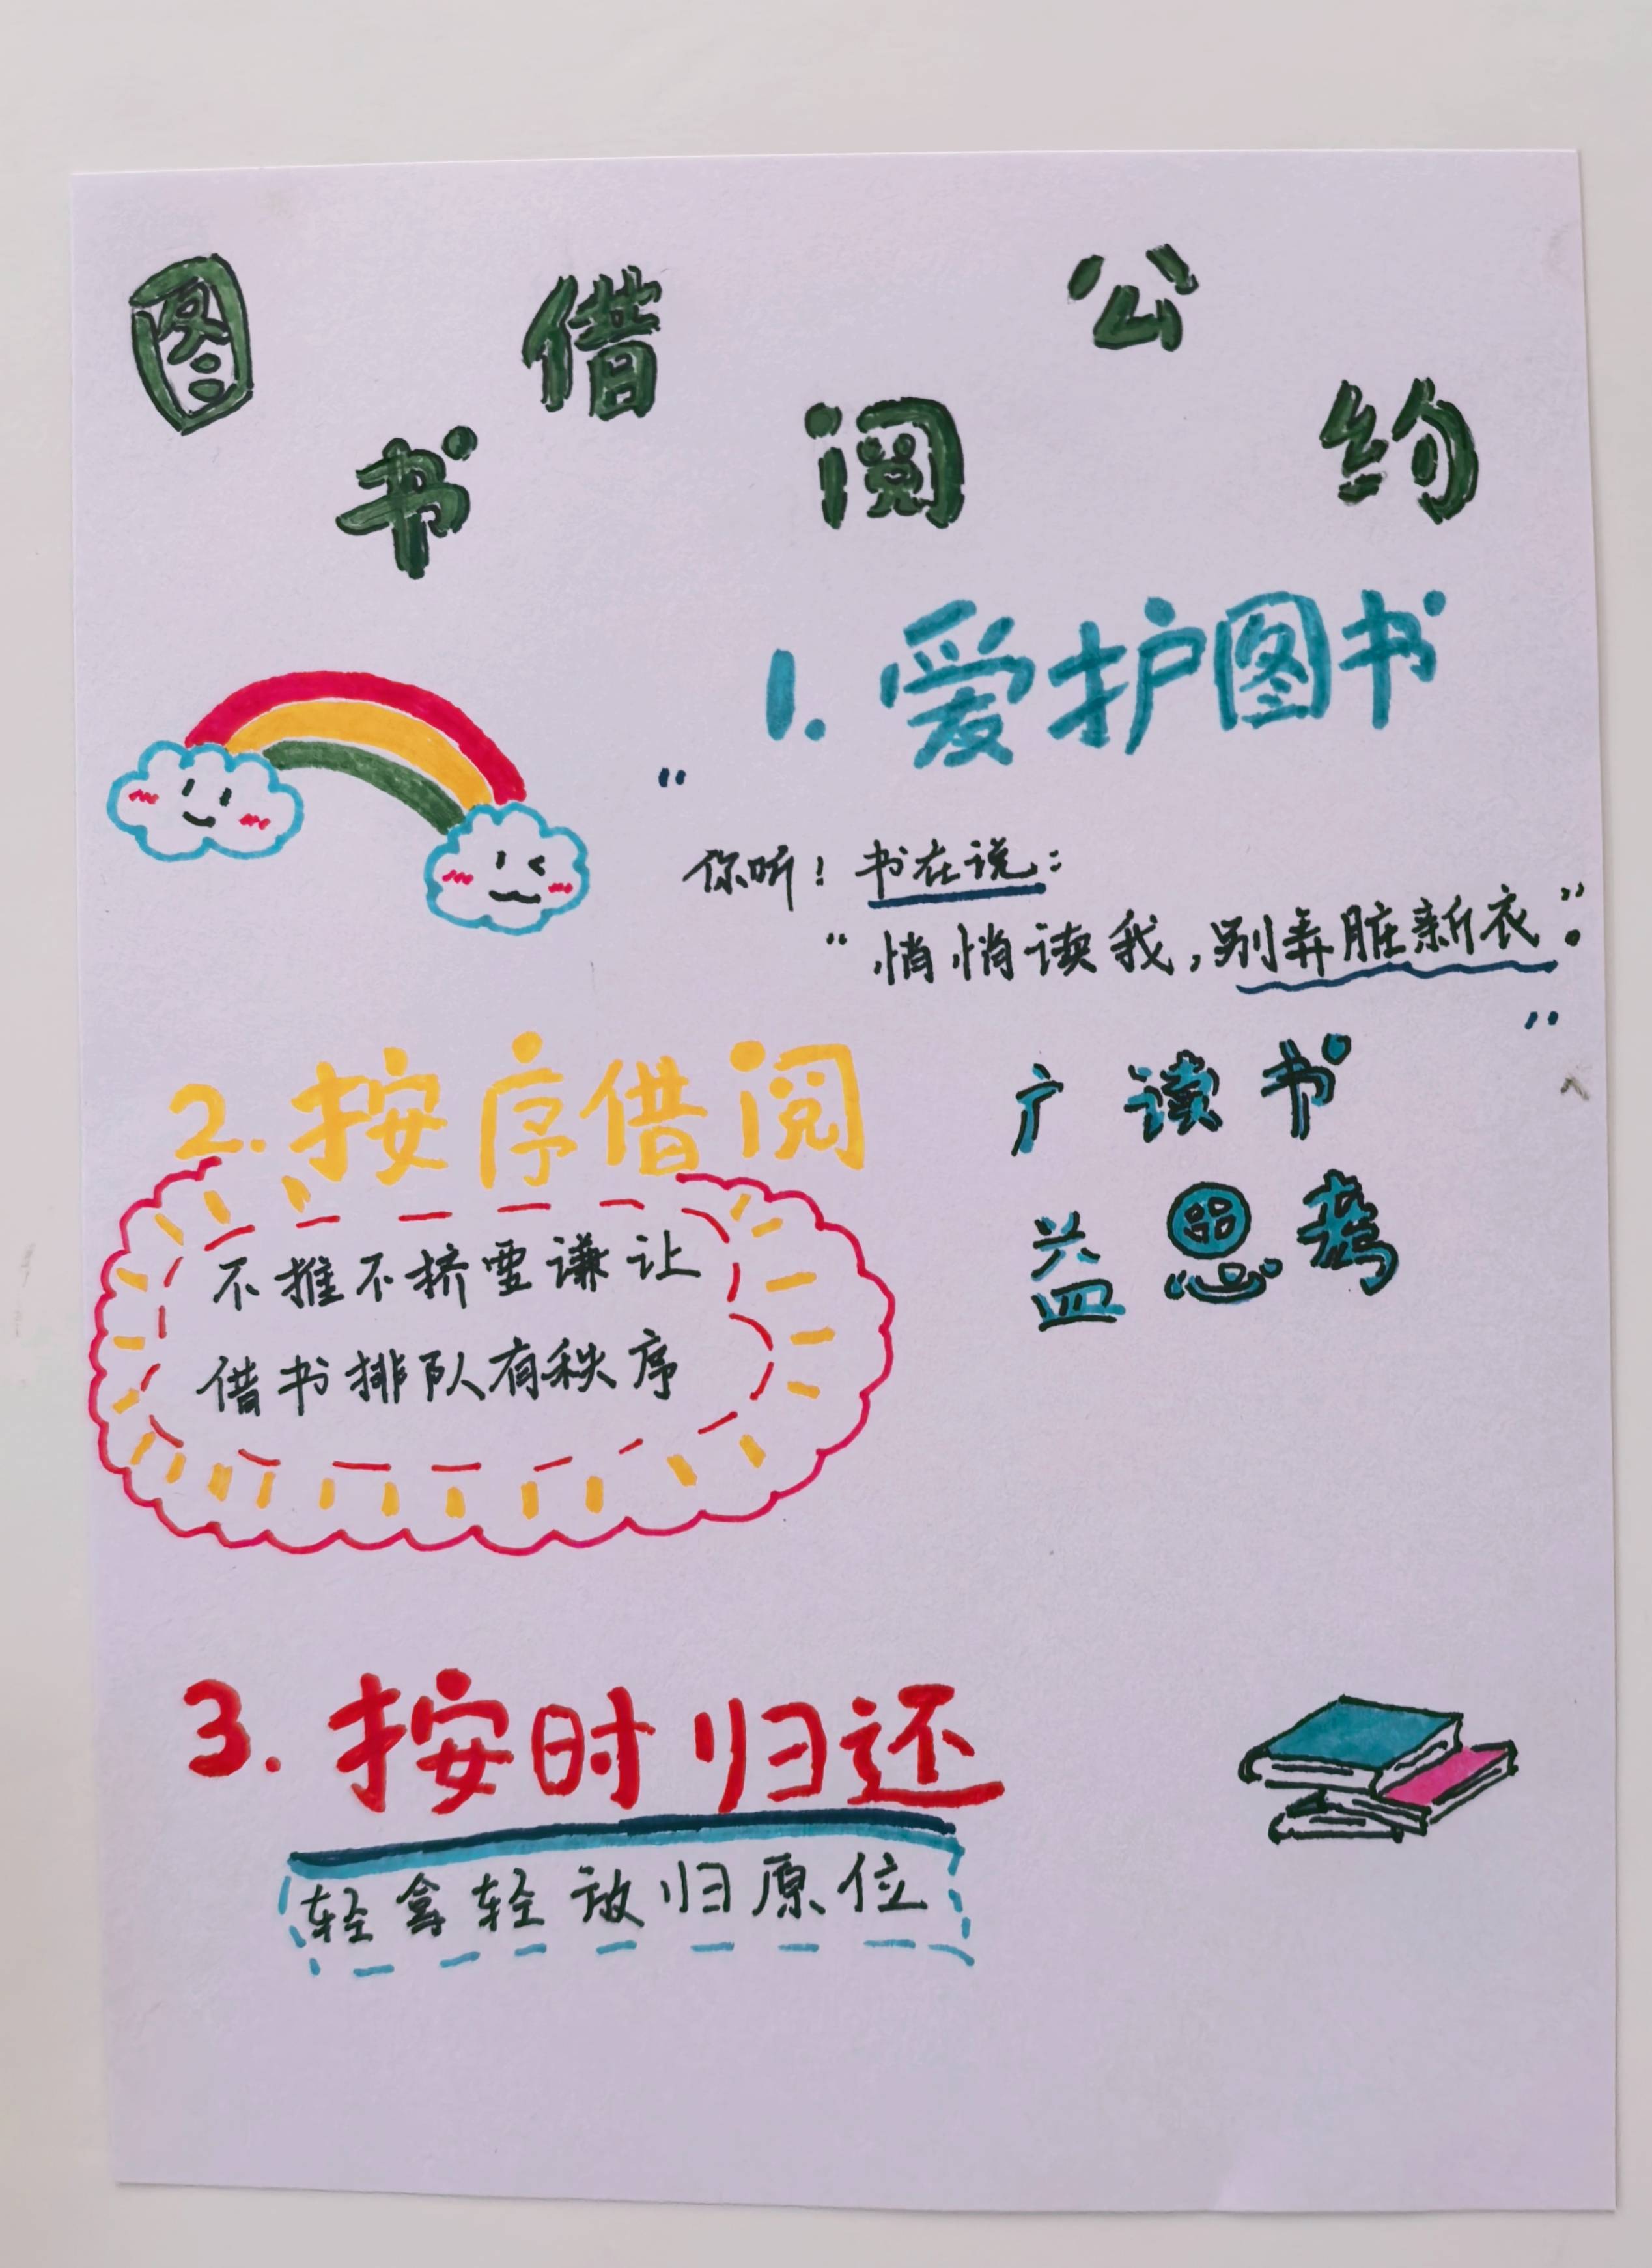 图书借阅公约
1. 爱护图书
"
你听！书在说：
"悄悄读我，别弄脏新衣。"
"
2. 按序借阅
不推不挤要谦让
借书排队有秩序
广读书
益思考
3. 按时归还
轻拿轻放归原位